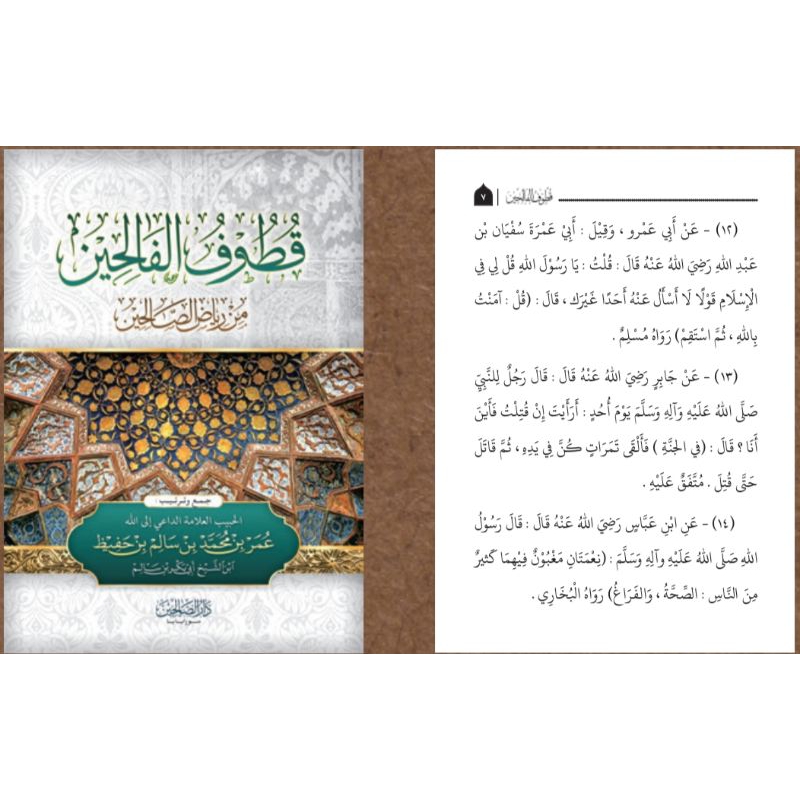 قُطُوفُ الفَالِحِين
مِن رِيَاضِ الصَّالِحِين
جمع وترتيب :
الحبيب العلامة الداعي إلى الله
عُمَر بِن مُحمَّد بِن سَالِم بِن حَفِيظ
ابْنُ الشَّيْخِ أَبِي بَكْر بْن سَالِم
دَارُ الصَّالِحِين
سورابايا
٧ | قُطُوفُ الفَالِحِين
(١٢) - عَنْ أَبِي عَمْرو ، وَقِيْلَ : أَبِيْ عَمْرَةَ سُفْيَان بْنِ
عَبْدِ اللهِ رَضِيَ اللهُ عَنْهُ قَالَ : قُلْتُ : يَا رَسُوْلَ اللهِ قُل لِي فِي
الْإِسْلَامِ قَوْلًا لَا أَسْأَلُ عَنْهُ أَحَدًا غَيْرَك ، قَالَ : (قُلْ : آمَنْتُ
بِاللهِ ، ثُمَّ اسْتَقِمْ) رَوَاهُ مُسْلِمٌ .
(١٣) - عَنْ جَابِرٍ رَضِيَ اللهُ عَنْهُ قَالَ : قَالَ رَجُلٌ لِلنَّبِيِّ
صَلَّى اللهُ عَلَيْهِ وَآلِهِ وَسَلَّمَ يَوْمَ أُحُدٍ : أَرَأَيْتَ إِنْ قُتِلْتُ فَأَيْنَ
أَنَا ؟ قَالَ : (فِي الجَنَّةِ ) فَأَلْقَى تَمَرَاتٍ كُنَّ فِي يَدِهِ ، ثُمَّ قَاتَلَ
حَتَّى قُتِلَ . مُتَّفَقٌ عَلَيْهِ .
(١٤) - عَنِ ابْنِ عَبَّاسٍ رَضِيَ اللهُ عَنْهُ قَالَ : قَالَ رَسُوْلُ
اللهِ صَلَّى اللهُ عَلَيْهِ وَآلِهِ وَسَلَّمَ : (نِعْمَتَانِ مَغْبُوْنٌ فِيْهِمَا كَثِيْرٌ
مِنَ النَّاسِ : الصِّحَّةُ ، وَالفَرَاغُ) رَوَاهُ الْبُخَارِي .